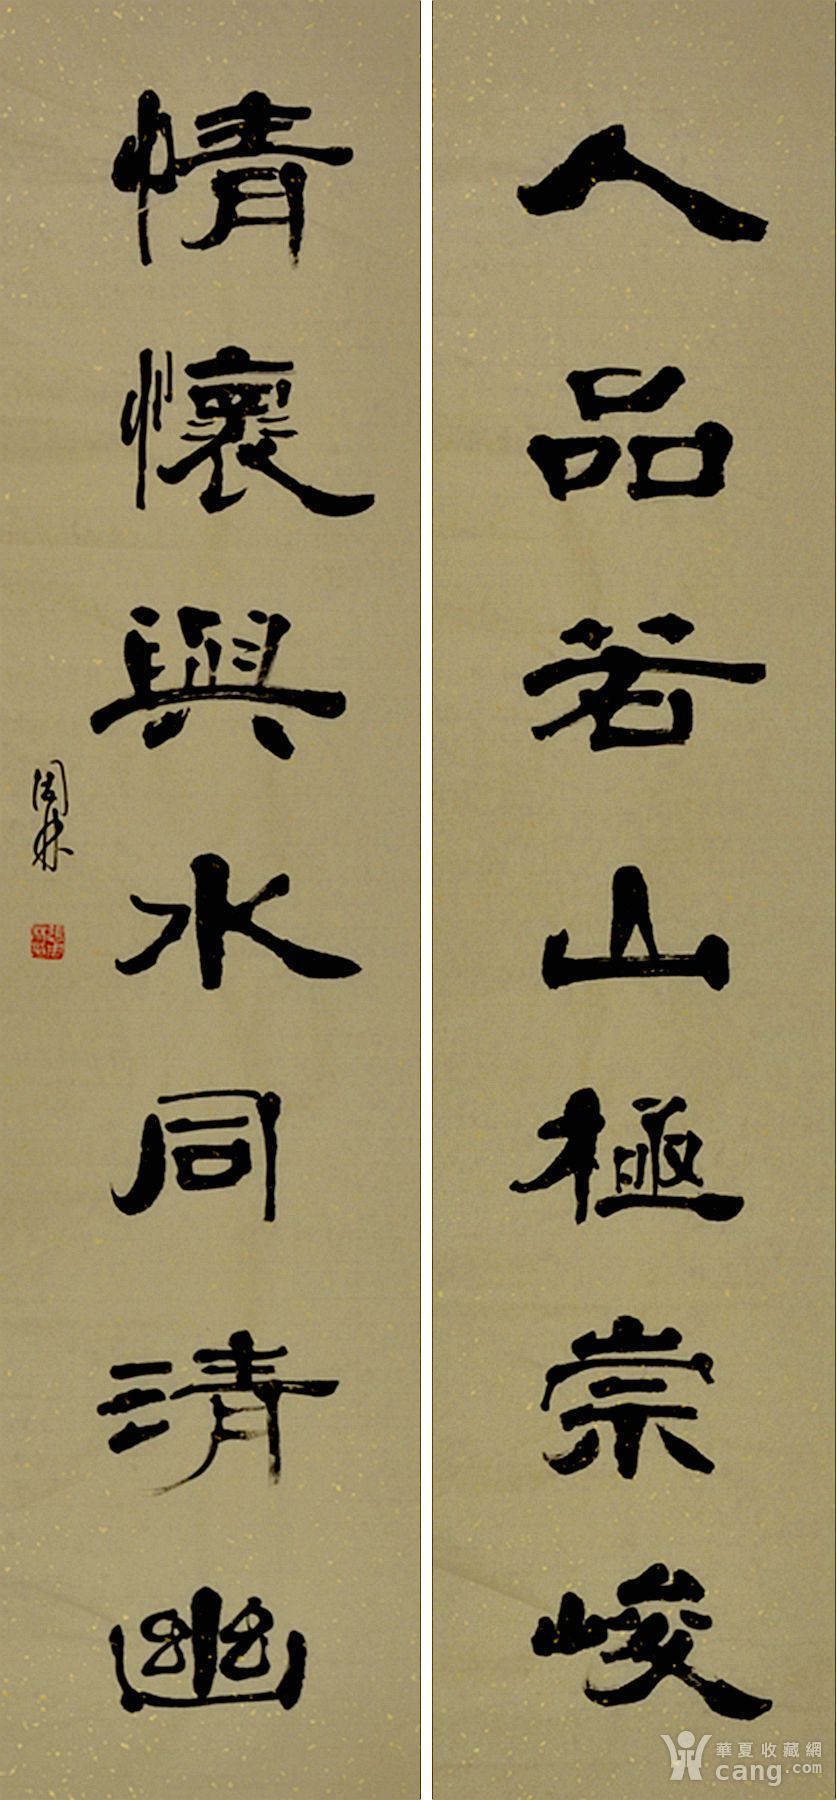 人品若山極崇峻
情懷與水同清幽
華夏收藏網
cang.com